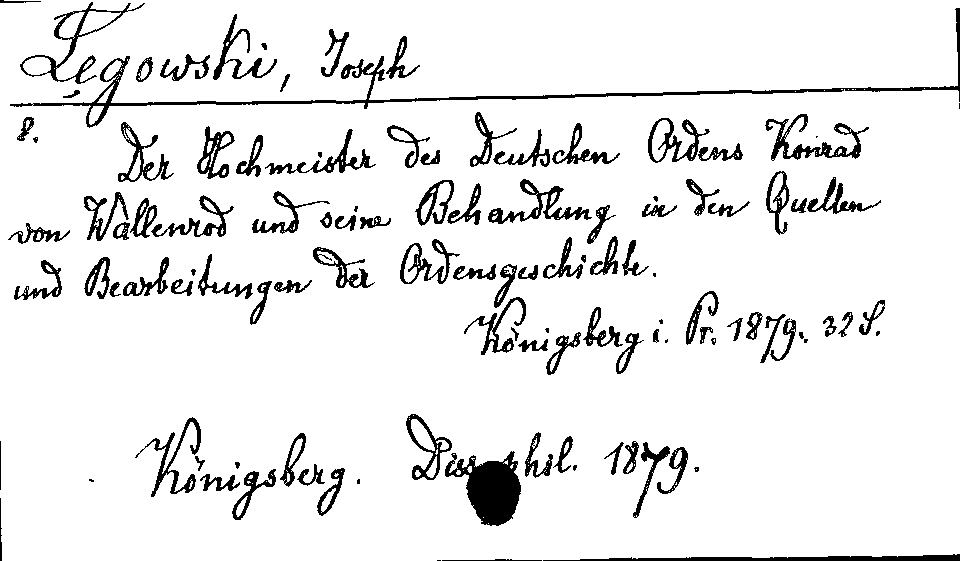 Łęgowski, Joseph
8.
Der Hochmeister des Deutschen Ordens Konrad
von Wallenrod und seine Behandlung in den Quellen
und Bearbeitungen der Ordensgeschichte.
Königsberg i. Pr. 1879. 32 S.
Königsberg. Diss. phil. 1879.